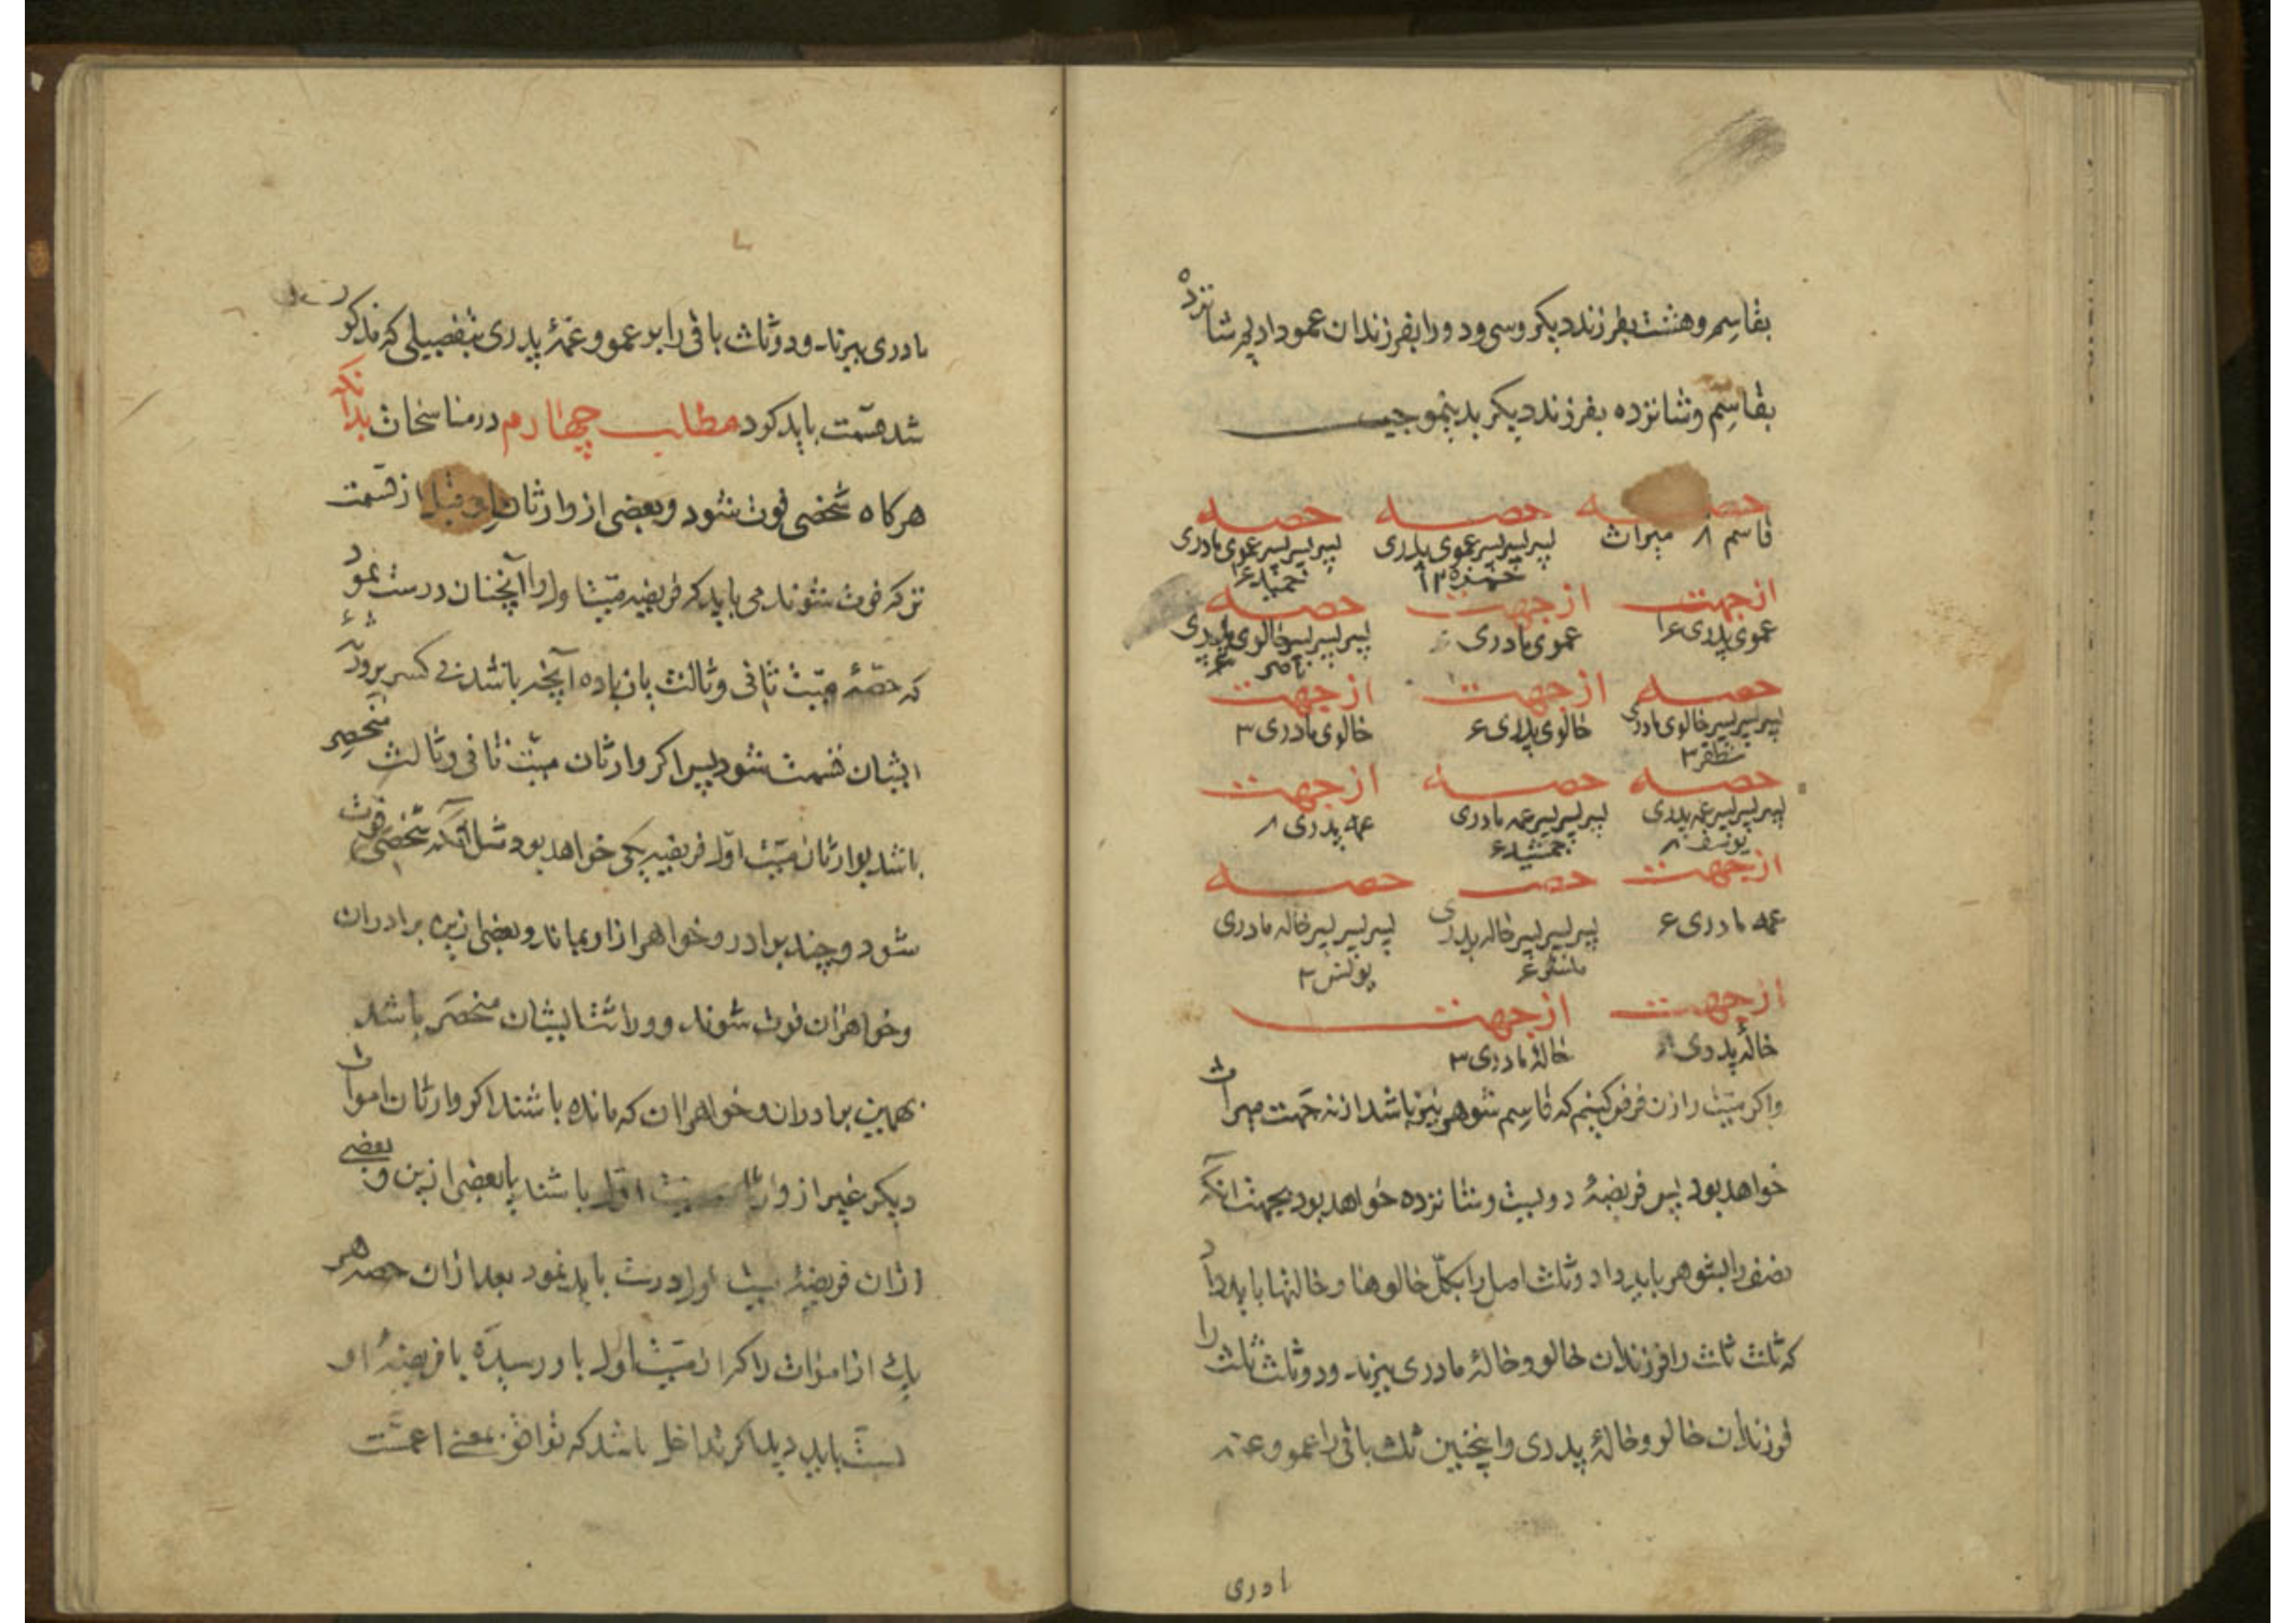 بقاسم وهشت بفرزند دیکر وسی ودو را بفرزندان عمو داد پس شانزده
بقاسم وشانزده بفرزند دیکر بدینموجب
حصه حصه حصه
قاسم ۸ میراث پسر پسر پسر عموی پدری حمزه پسر پسر پسر عموی مادری
از جهت از جهت حصه
عموی پدری ۱۶ عموی مادری پسر پسر پسر خالوی پدری ناصر ۶
حصه از جهت از جهت
پسر پسر پسر خالوی مادری مظفر ۳ خالوی پدری ۶ خالوی مادری ۳
حصه حصه از جهت
پسر پسر پسر عمه پدری یوسف ۸ پسر پسر پسر عمه مادری جمشید ۴ عمه پدری ۸
از جهت حصه حصه
عمه مادری ۴ پسر پسر پسر خاله پدری پسر پسر پسر خاله مادری یونس
از جهت از جهت
خالهٔ پدری خالهٔ مادری ۳
واکر میّت را زن فرض کنیم که قاسم شوهر نیز باشد از نه جهت میراث
خواهد بود پس فریضهٔ دویست وشانزده خواهد بود بجهت آنکه
نصف را بشوهر باید داد وثلث اصل را بکلّ خالوها وخالتها باید داد
که ثلث ثلث را فرزندان خالو وخالهٔ مادری ببرند ودو ثلث ثلث را
فرزندان خالو وخالهٔ پدری واینچنین ثلث باقی را عمو وعمه
ادری
مادری ببرند ودو ثلث باقی را بر عمو وعمهٔ پدری بتفصیلی که مذکور
شد قسمت باید کرد مطلب چهارم در مناسخات بدانکه
هرکاه شخصی فوت شود وبعضی از وارثان او قبل از قسمت
ترکه فوت شوند می باید که فریضه میّت اول را آنچنان درست نمود
که حصّهٔ میّت ثانی وثالث یا زیاده آنچه باشد بی کسر بر ورثهٔ
ایشان قسمت شود پس اکر وارثان میّت ثانی وثالث منحصر
باشد بوارثان میّت اوّل فریضه یکی خواهد بود مثل آنکه شخصی فوت
شود وچند برادر وخواهر از او بماند وبعضی ازین برادران
وخواهران فوت شوند وورثهٔ ایشان منحصر باشد
بهمین برادران وخواهران که مانده باشند اکر وارثان اموات
دیکر غیر از وارثان میّت اوّل باشند یا بعضی ازین وبعضی
از آن فریضهٔ میّت اول درست باید نمود بعد ازان حصه هر
یک از اموات را که از میّت اول باو رسیده با فریضهٔ او
نسبت باید دید اکر تداخل باشد که توافق بمعنی اعمست